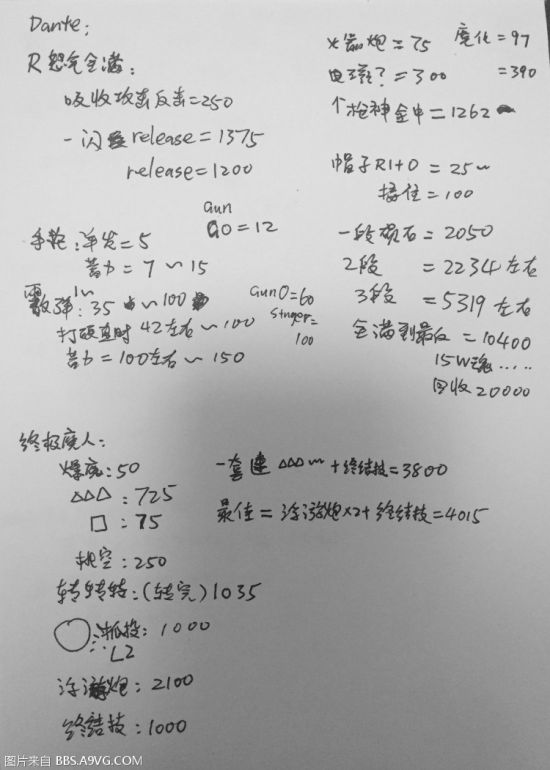 Dante;
R怒气全满:
吸收攻击反击=250
一闪 release=1375
release=1200
Gun
GO=12
手枪:单发=5
蓄力=7~15
散弹:35~100
打硬直时42左右~100
蓄力=100左右~150
GunO=60
Stinger=
100
火箭炮=75 魔化=97
电磁?=300 =390
个枪神全中=1262
帽子R1+O=25~
接住=100
一段陨石=2050
2段 =2234左右
3段 =5319左右
全满到最后=10400
15W魂……
回收20000
终极魔人:
爆魔:50
△△△:725
□:75
挑空:250
转转转:(转完)1035
○ 抓投:1000
L2
浮游炮:2100
终结技:1000
一套连△△△~+终结技=3800
最佳=浮游炮×2+终结技=4015
图片来自 BBS.A9VG.COM